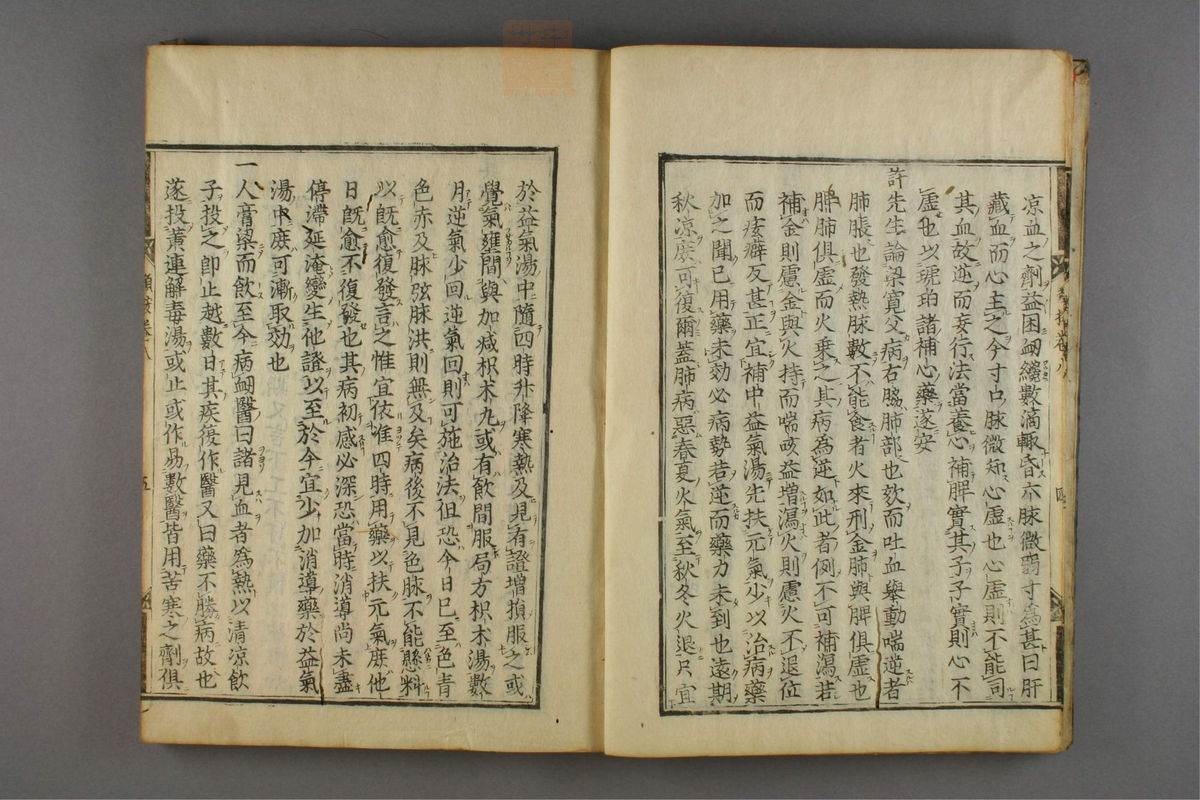 凉血之劑益困衂纔數滴輙昏六脉微弱寸爲甚曰肝
藏血而心主之今寸口脉微知心虛也心虛則不能司
其血故逆而妄行法當養心補脾實其子子實則心不
虛也以琥珀諸補心藥遂安
許先生論梁寬父病右脇肺部也欬而吐血舉動喘逆者
肺脹也發熱脉數不能食者火來刑金肺與脾俱虛也
脾肺俱虛而火乗之其病爲逆如此者例不可補瀉若
補金則慮金與火持而喘咳益增瀉火則慮火不退位
而痃癖反甚正宜補中益氣湯先扶元氣少以治病藥
加之聞已用藥未効必病勢若逆而藥力未到也遠期
秋凉庶可復爾蓋肺病惡春夏火氣至秋冬火退只宜
於益氣湯中隨四時升降寒熱及見有證增損服之或
覺氣壅間與加减枳朮丸或有飲間服局方枳朮湯數
月逆氣少回逆氣回則可施治法但恐今日已至色靑
色赤及脉弦脉洪則無及矣病後不見色脉不能懸料
以既愈復發言之惟宜依準四時用藥以扶元氣庶他
日既愈不復發也其病初感必深恐當時消導尚未盡
停滯延淹變生他證以至於今宜少加消導藥於益氣
湯中庶可漸取効也
一人膏粱而飮至今病衂醫曰諸見血者爲熱以清凉飲
子投之卽止越數日其疾復作醫又曰藥不勝病故也
遂投黃連解毒湯或止或作易數醫皆用苦寒之劑俱
五